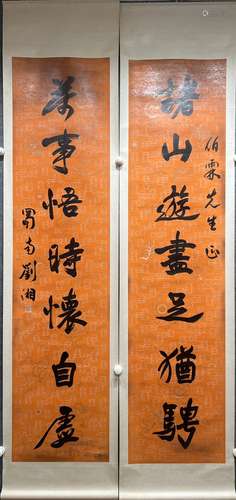 諸山遊盡足猶騁
伯霖先生正
萬事悟時懷自虛
蜀南劉湘